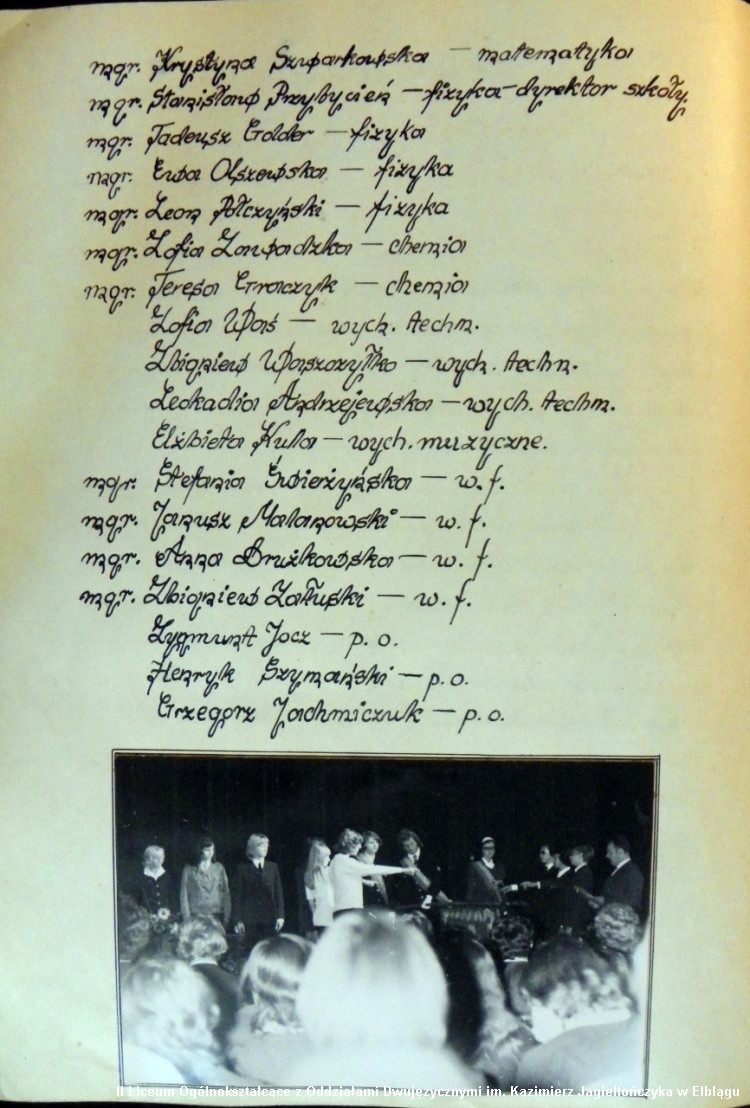 mgr. Krystyna Szwarkowska — matematyka
mgr. Stanisław Przybycień — fizyka - dyrektor szkoły.
mgr. Tadeusz Golder — fizyka
mgr. Ewa Olszewska — fizyka
mgr. Leon Połczyński — fizyka
mgr. Zofia Zawadzka — chemia
mgr. Teresa Graczyk — chemia
Zofia Woś — wych. techn.
Zbigniew Waszczyłko — wych. techn.
Leokadia Andrzejewska — wych. techn.
Elżbieta Kula — wych. muzyczne.
mgr. Stefania Świeżyńska — w. f.
mgr. Janusz Malanowski — w. f.
mgr. Anna Brużkowska — w. f.
mgr. Zbigniew Załuski — w. f.
Zygmunt Jocz — p. o.
Henryk Szymański — p. o.
Grzegorz Jachmiczuk — p. o.
II Liceum Ogólnokształcące z Oddziałami Dwujęzycznymi im. Kazimierz Jagiellończyka w Elblągu